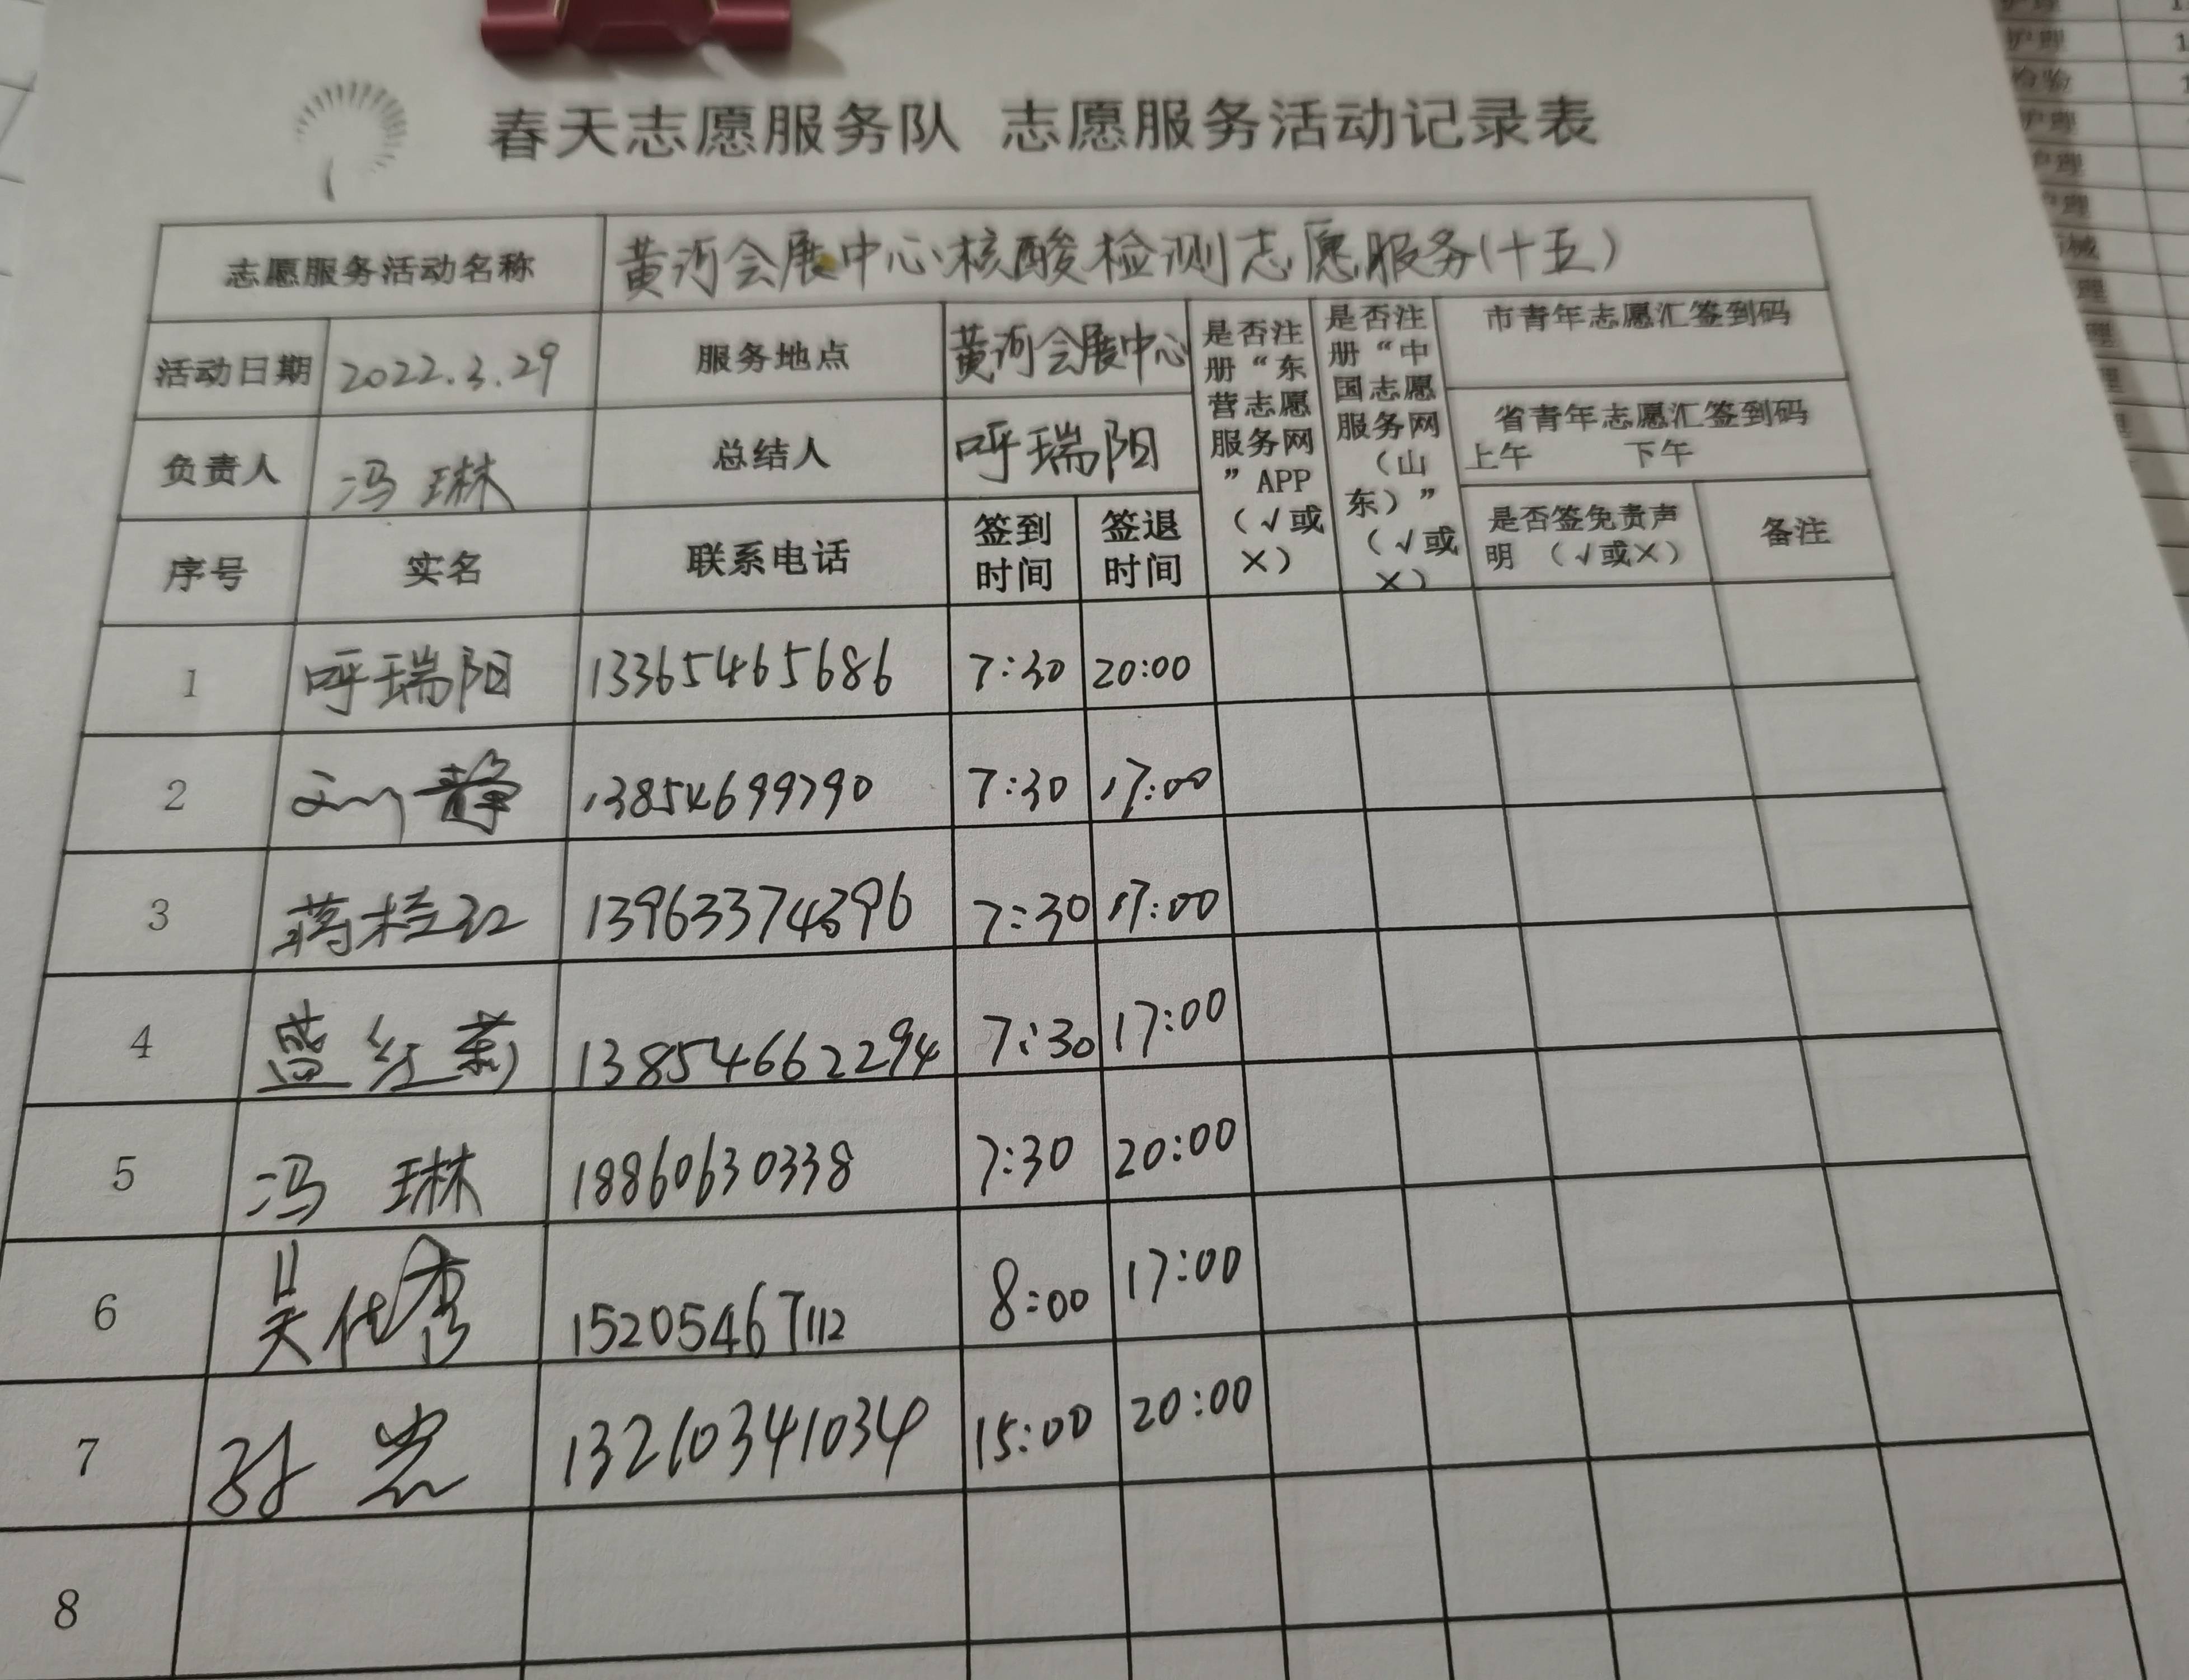 春天志愿服务队 志愿服务活动记录表
志愿服务活动名称 黄河会展中心核酸检测志愿服务(十五)
活动日期 2022.3.29 服务地点 黄河会展中心
是否注册“东营志愿服务网”APP(√或×)
是否注册“中国志愿服务网(山东)”(√或×)
市青年志愿汇签到码
负责人 冯琳 总结人 呼瑞阳
省青年志愿汇签到码
上午 下午
序号 实名 联系电话 签到时间 签退时间 是否签免责声明 (√或×) 备注
1 呼瑞阳 13365465686 7:30 20:00
2 刘静 13854699790 7:30 17:00
3 蒋桂红 13963374396 7:30 17:00
4 盖红莉 13854662294 7:30 17:00
5 冯琳 18860630338 7:30 20:00
6 吴代秀 15205467112 8:00 17:00
7 孙 13210341034 15:00 20:00
8
护理
护理
检验
护理
护理
护理